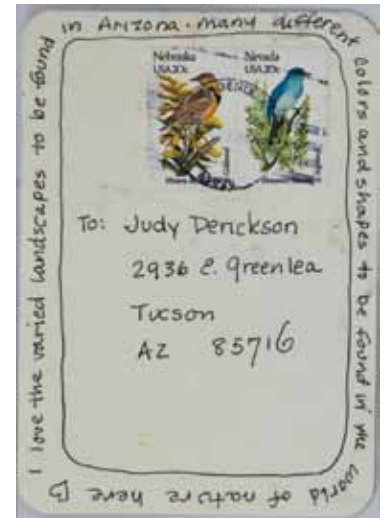 I love the varied landscapes to be found
in Arizona. many different
colors and shapes to be found in the
world of nature here
Nebraska
USA 20c
Nevada
USA 20c
To: Judy Derickson
2936 E. Greenlea
Tucson
AZ 85716